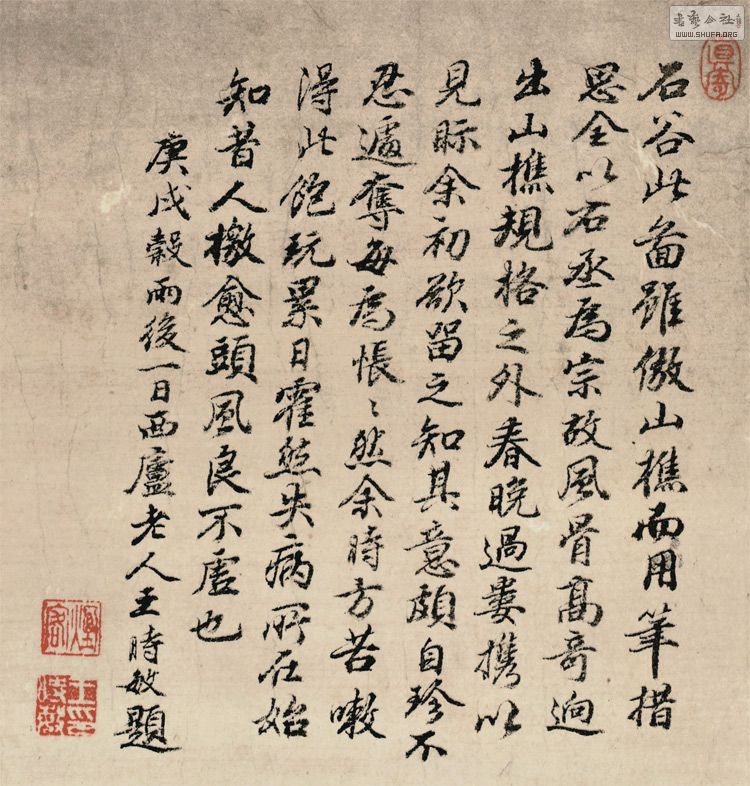 石谷此圖雖倣山樵而用筆措
思全以右丞爲宗故風骨高奇迥
出山樵規格之外春晚過婁携以
見眎余初欲留之知其意頗自珍不
忍遽奪每爲悵〻然余時方苦嗽
得此飽玩累日霍然失病所在始
知昔人檄愈頭風良不虛也
庚戌穀雨後一日西廬老人王時敏題
書藝公社
WWW.SHUFA.ORG